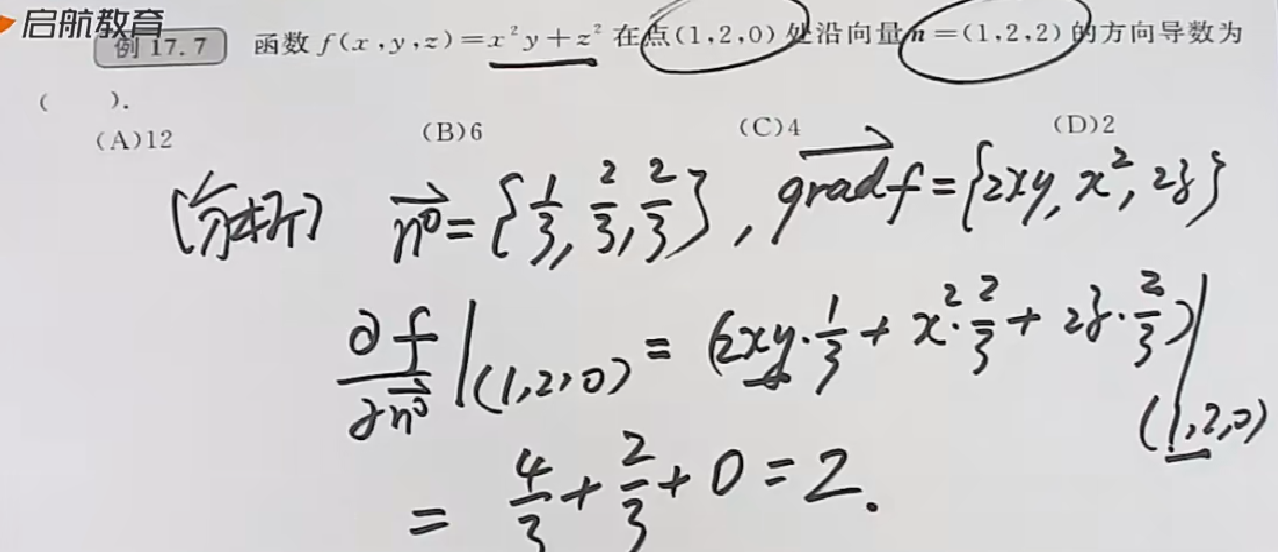 启航教育
例 17.7 函数 f(x,y,z)=x²y+z² 在点(1,2,0)处沿向量n=(1,2,2)的方向导数为
( ).
(A)12 (B)6 (C)4 (D)2
[分析] n⁰={1/3, 2/3, 2/3}, grad f={2xy, x², 2z}
∂f/∂n⁰|(1,2,0) = (2xy·1/3 + x²·2/3 + 2z·2/3)|(1,2,0)
= 4/3 + 2/3 + 0 = 2.